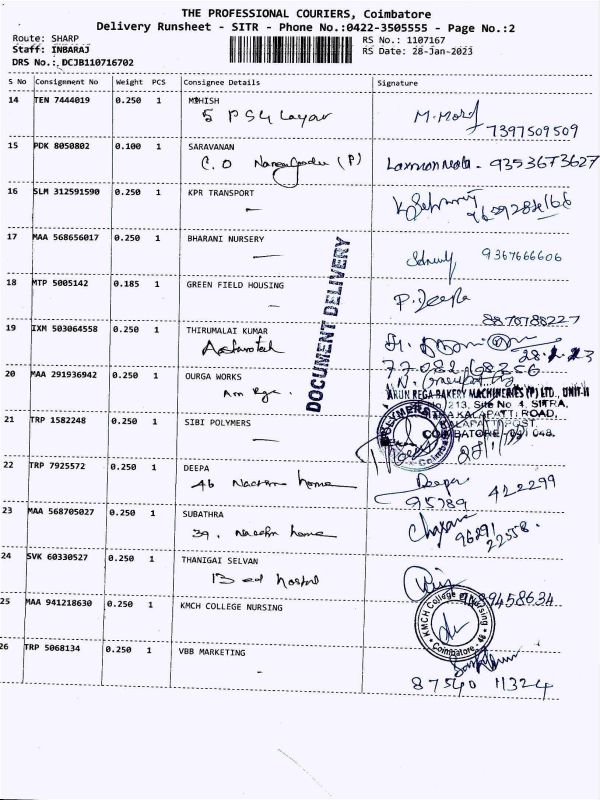 THE PROFESSIONAL COURIERS, Coimbatore
Delivery Runsheet - SITR - Phone No.:0422-3505555 - Page No.:2
Route: SHARP
Staff: INBARAJ
DRS No.: DCJB110716702
RS No.: 1107167
RS Date: 28-Jan-2023
S No Consignment No Weight PCS Consignee Details Signature
14 TEN 7444019 0.250 1 MAHISH
5 PSG Layar
M.
7397509509
15 PDK 8050802 0.100 1 SARAVANAN
C.O (P)
9353673627
16 SLM 312591590 0.250 1 KPR TRANSPORT
17 MAA 568656017 0.250 1 BHARANI NURSERY
9367666606
18 MTP 5005142 0.185 1 GREEN FIELD HOUSING
P. Deepa
8870788227
DOCUMENT DELIVERY
19 IXM 503064558 0.250 1 THIRUMALAI KUMAR
28.1.23
77082 68356
20 MAA 291936942 0.250 1 OURGA WORKS
ARUN REGA BAKERY MACHINERIES (P) LTD., UNIT-II
No. 213, Site No 4, SITRA,
KALAPATTI ROAD,
KALAPATTI POST,
COIMBATORE - 641 048.
21 TRP 1582248 0.250 1 SIBI POLYMERS
POLYMERS
Coimbatore
22 TRP 7925572 0.250 1 DEEPA
46 home
Deepa
95789 422299
23 MAA 568705027 0.250 1 SUBATHRA
39. home
96291
22558.
24 SVK 60330527 0.250 1 THANIGAI SELVAN
B ed hostel
9489458634
25 MAA 941218630 0.250 1 KMCH COLLEGE NURSING
KMCH College of Nursing
Coimbatore - 48
26 TRP 5068134 0.250 1 VBB MARKETING
87540 11324